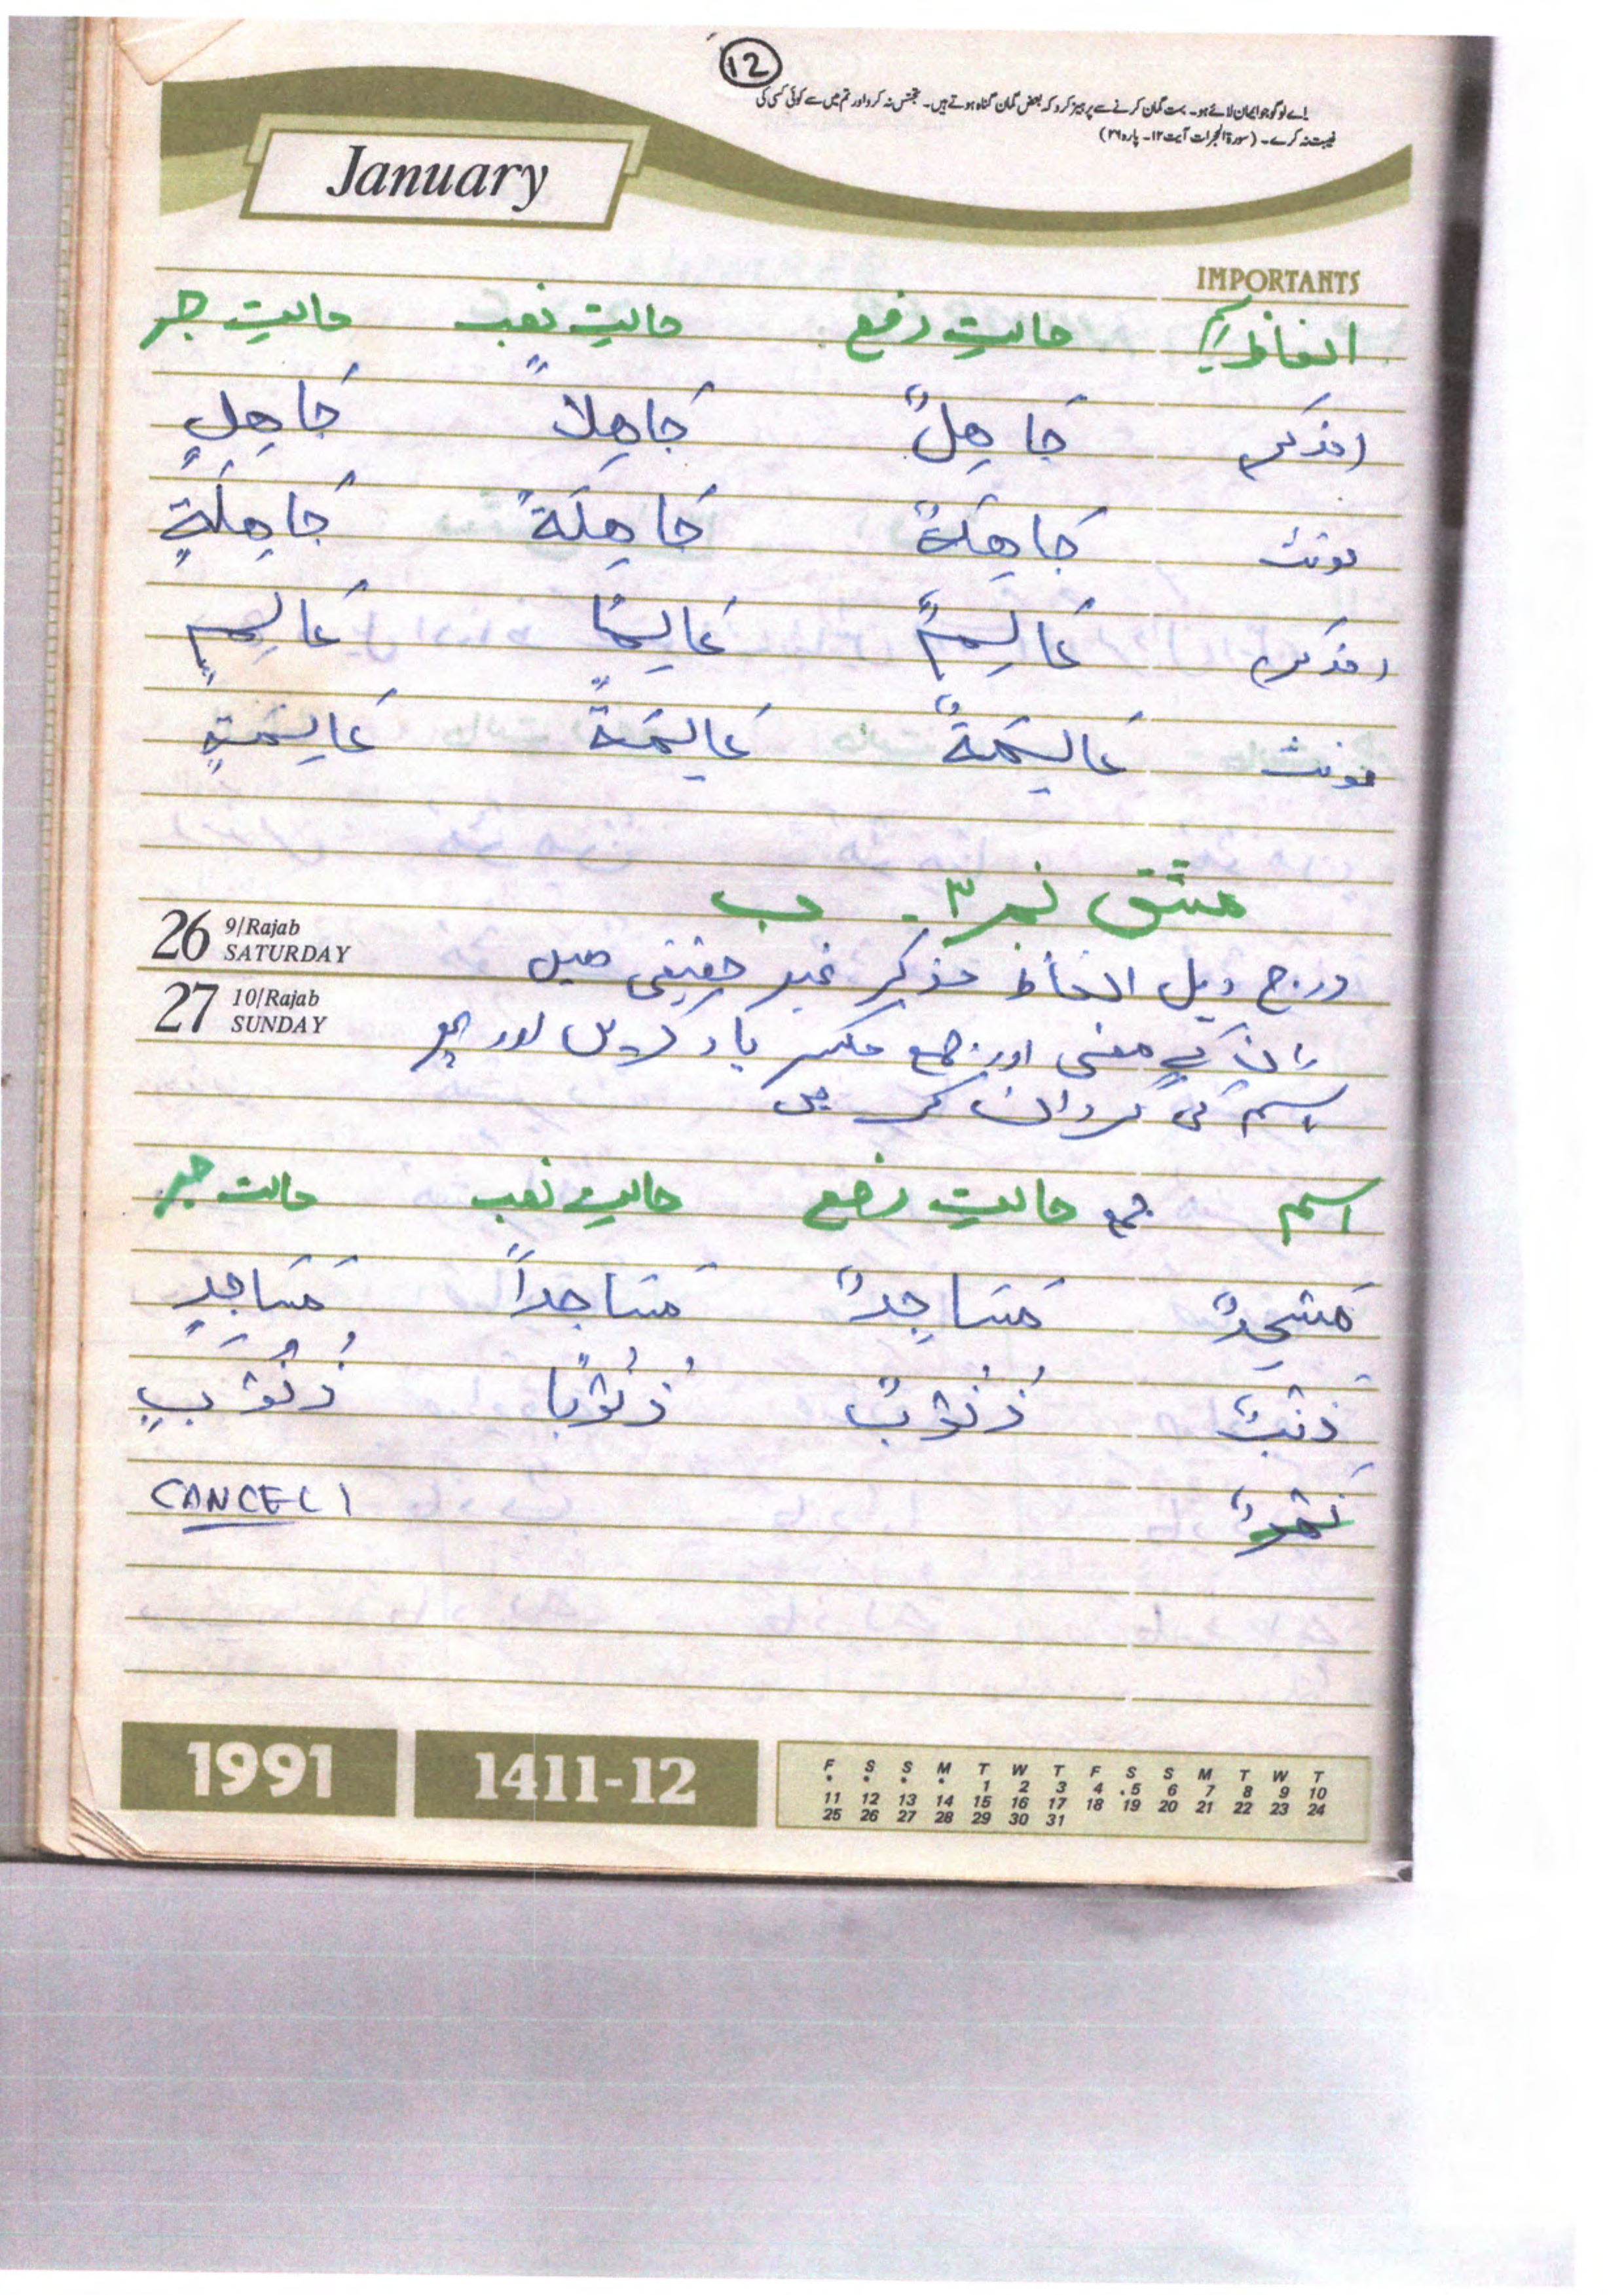 12
اے لوگو جو ایمان لائے ہو۔ بہت گمان کرنے سے پرہیز کرو کہ بعض گمان گناہ ہوتے ہیں۔ تجسّس نہ کرو اور تم میں سے کوئی کسی کی
غیبت نہ کرے۔ (سورۃ الحجرات آیت ۱۲۔ پارہ ۲۶)
January
IMPORTANTS
الفاظ اسم حالتِ رفع حالتِ نصب حالتِ جر
(مذکر) جَاهِلٌ جَاهِلاً جَاهِلٍ
مونث جَاهِلَةٌ جَاهِلَةً جَاهِلَةٍ
(مذکر) عَالِمٌ عَالِمًا عَالِمٍ
مونث عَالِمَةٌ عَالِمَةً عَالِمَةٍ
مشق نمبر ۳۔ ب
26 9/Rajab SATURDAY
درج ذیل الفاظ مذکر غیر حقیقی ہیں
27 10/Rajab SUNDAY
ان کے معنی اور جمع مکسر یاد کریں اور پھر
اسم کی گردان کریں
اسم جمع حالتِ رفع حالتِ نصب حالت جر
مَسْجِدٌ مَسَاجِدٌ مَسَاجداً مَسَاجِدٍ
ذَنْبٌ ذُنُوْبٌ ذُنُوْبًا ذُنُوْبٍ
CANCEL
1991 1411-12
F S S M T W T F S S M T W T
• • • • 1 2 3 4 5 6 7 8 9 10
11 12 13 14 15 16 17 18 19 20 21 22 23 24
25 26 27 28 29 30 31